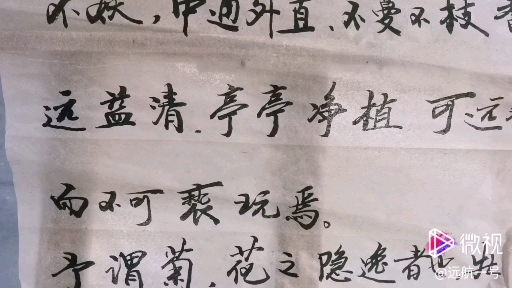 不妖,中通外直,不蔓不枝
远益清,亭亭净植 可远
而不可亵玩焉。
予谓菊,花之隐逸者也
微视
@远航一号